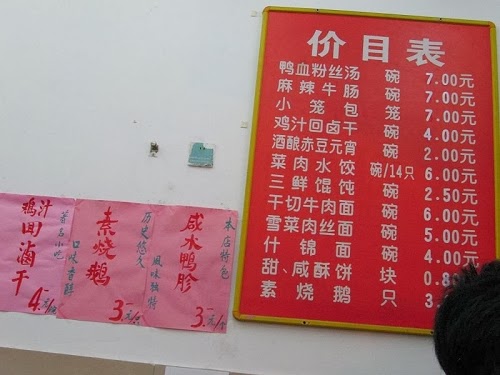 价目表
鸭血粉丝汤 碗 7.00元
麻辣牛肠 碗 7.00元
小笼包 笼 7.00元
鸡汁回卤干 碗 4.00元
酒酿赤豆元宵 碗 2.00元
菜肉水饺 碗/14只 6.00元
三鲜馄饨 碗 2.50元
干切牛肉面 碗 6.00元
雪菜肉丝面 碗 5.00元
什锦面 碗 4.00元
甜、咸酥饼 块 0.8
素烧鹅 只 3
本店特色
咸水鸭胗
风味独特
3元/个
历史悠久
素烧鹅
口味
3元/
著名小吃
鸡汁回滷干
4元